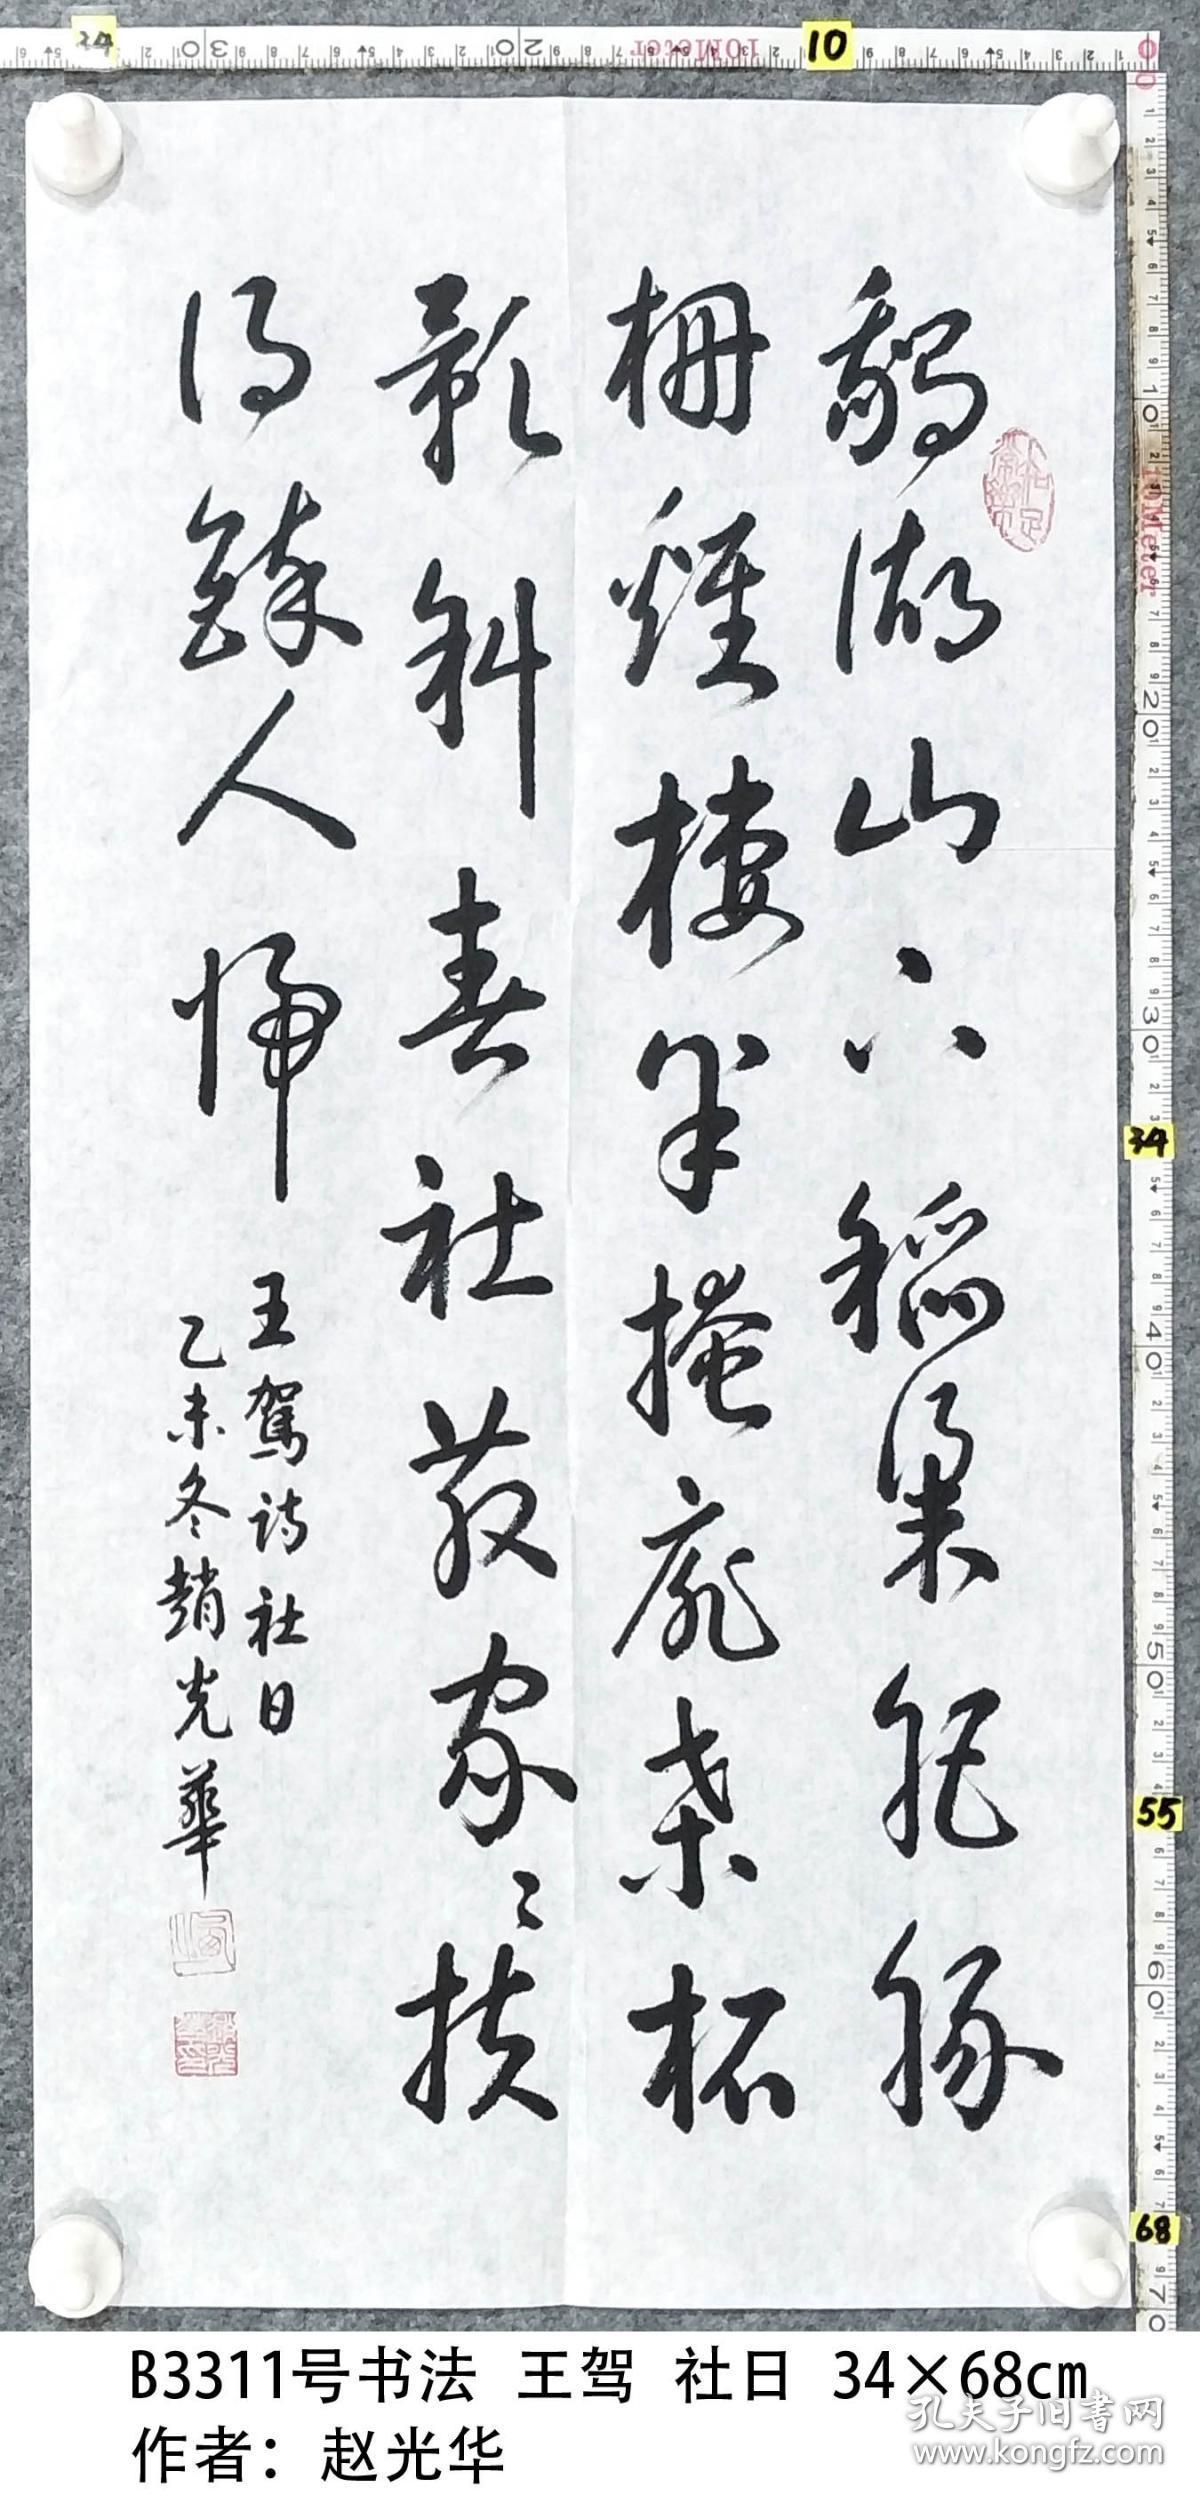 鹅湖山下稻粱肥豚
栅鸡栖半掩扉桑柘
影斜春社散家々扶
得醉人归
王駕诗社日
乙未冬趙光華
知足常樂
34
10
34
55
68
10Meter
10Meter
B3311号书法 王驾 社日 34×68cm
作者：赵光华
孔夫子旧书网
www.kongfz.com